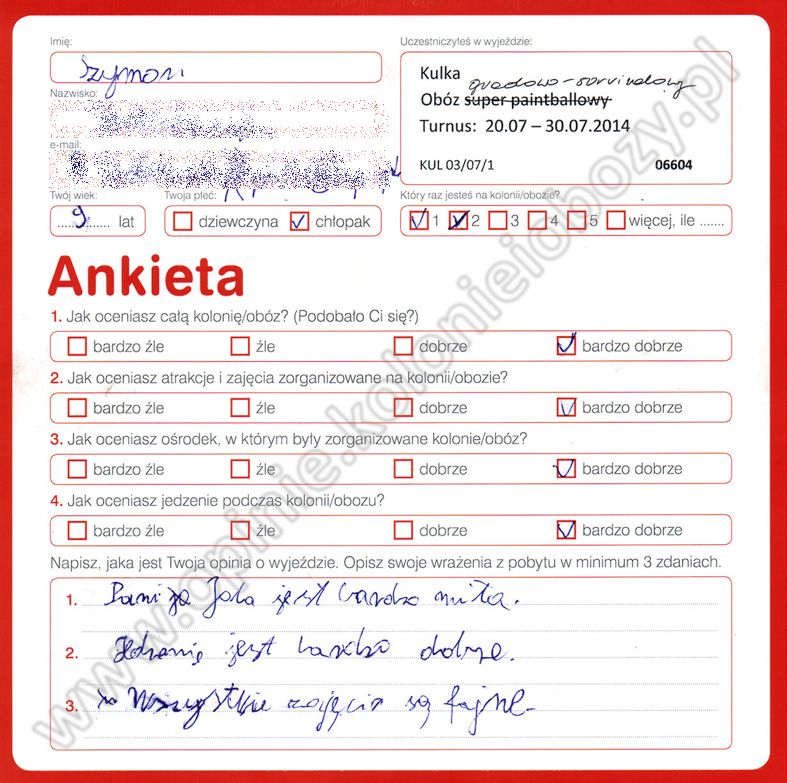 Imię:
Szymon
Nazwisko:
e-mail:
Twój wiek:
9 lat
Twoja płeć:
dziewczyna chłopak
Uczestniczyłeś w wyjeździe:
Kulka
Obóz super paintballowy
Turnus: 20.07 – 30.07.2014
KUL 03/07/1 06604
Który raz jesteś na kolonii/obozie?
1 2 3 4 5 więcej, ile .......
Ankieta
1. Jak oceniasz całą kolonię/obóz? (Podobało Ci się?)
bardzo źle źle dobrze bardzo dobrze
2. Jak oceniasz atrakcje i zajęcia zorganizowane na kolonii/obozie?
bardzo źle źle dobrze bardzo dobrze
3. Jak oceniasz ośrodek, w którym były zorganizowane kolonie/obóz?
bardzo źle źle dobrze bardzo dobrze
4. Jak oceniasz jedzenie podczas kolonii/obozu?
bardzo źle źle dobrze bardzo dobrze
Napisz, jaka jest Twoja opinia o wyjeździe. Opisz swoje wrażenia z pobytu w minimum 3 zdaniach.
1. Pani jest bardzo miła.
2. jest bardzo dobrze.
3. Wszystkie zajęcia są fajne.
www.opinie.kolonieiobozy.pl